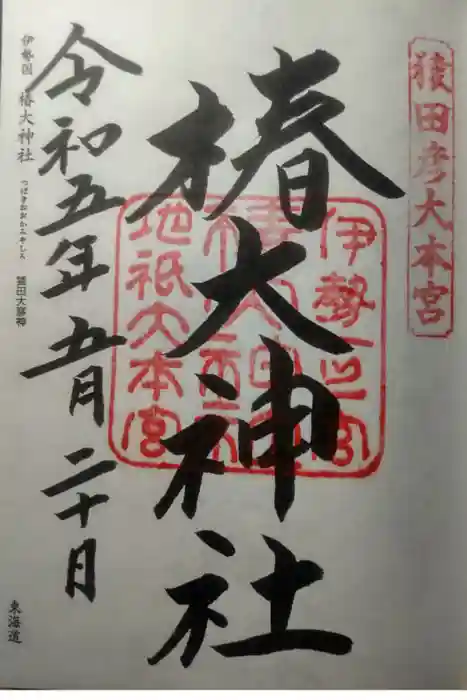 猿田彦大本宮
伊勢一之宮
椿大神社
地祇大本宮
椿大神社
令和五年五月二十日
伊勢国 椿大神社 つばきおおかみやしろ 猿田大彦神
東海道